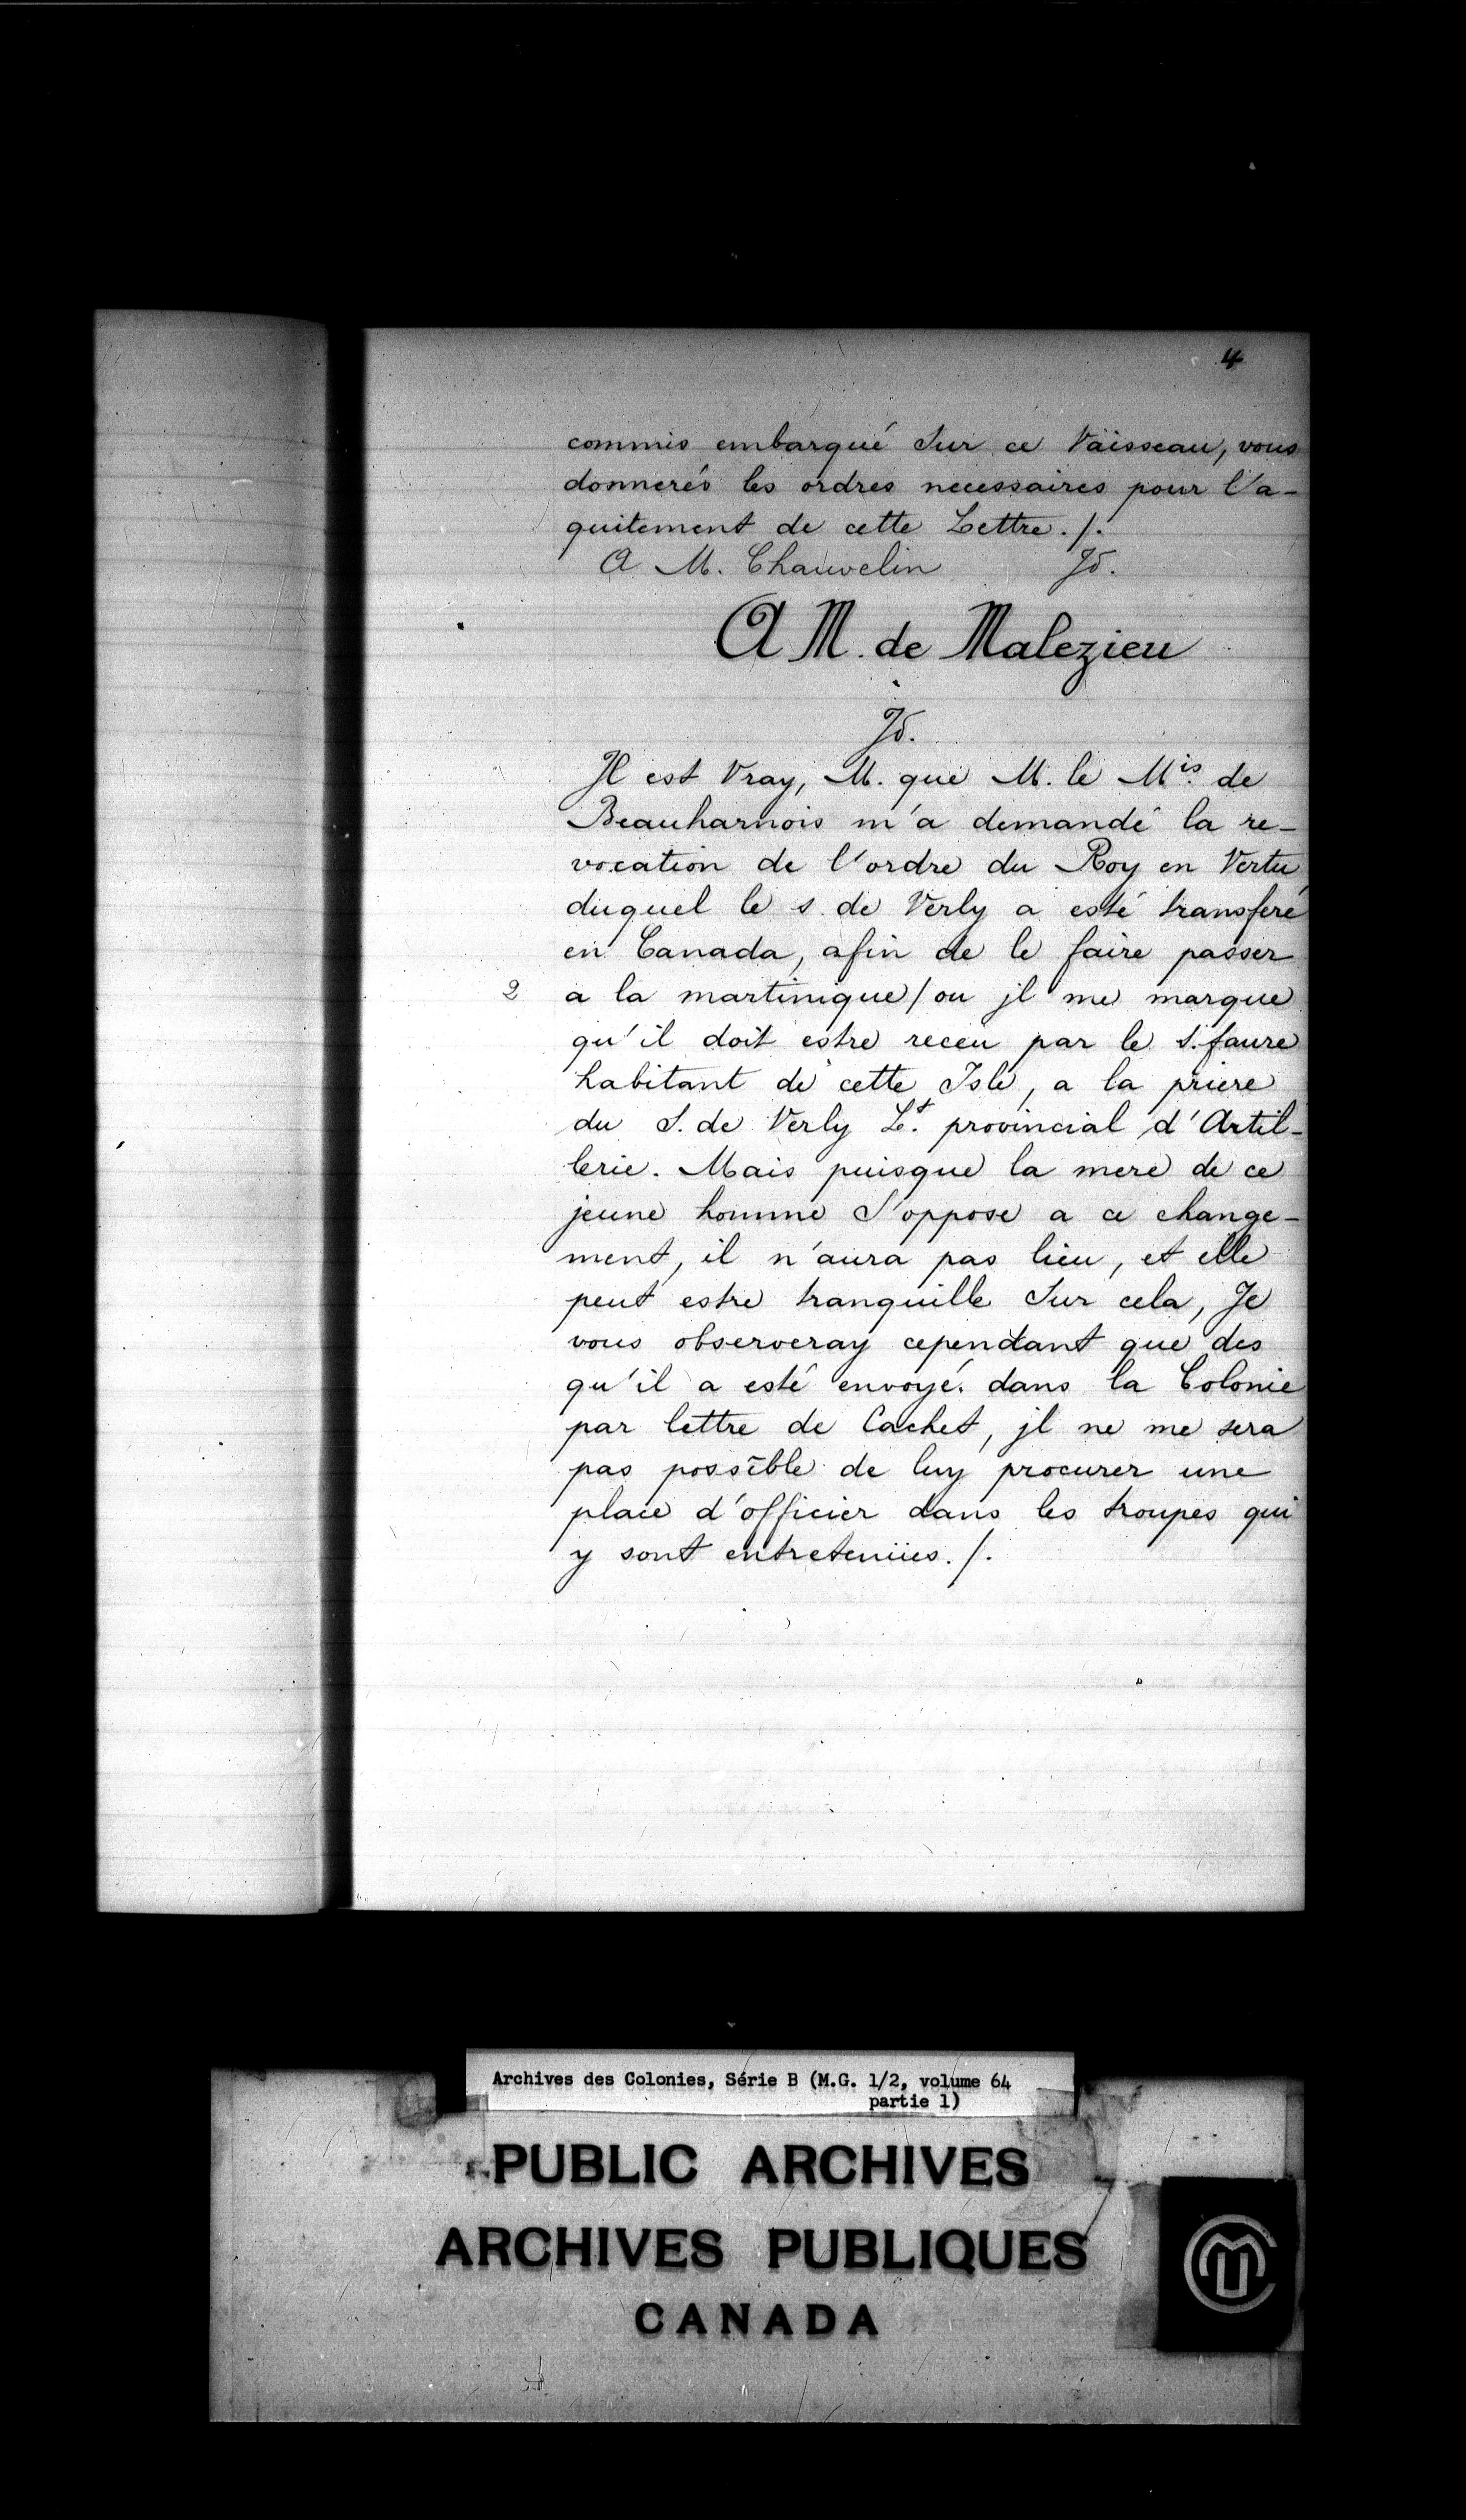 4
commis embarqué Sur ce Vaisseau, vous
donnerés les ordres necessaires pour l'a-
quitement de cette Lettre ./.
A M. Chauvelin Jd.
A M. de Malezieu
Jd.
Jl est Vray, M. que M. le Mis. de
Beauharnois m'a demandé la re-
vocation de l'ordre du Roy en Vertu
duquel le s. de Verly a esté transferé
en Canada, afin de le faire passer
2 a la martinique / ou jl me marque
qu'il doit estre receu par le S. faure
habitant de cette Isle, a la priere
du S. de Verly Lt. provincial d'Artil-
lerie. Mais puisque la mere de ce
jeune homme S'oppose a ce change-
ment, il n'aura pas lieu, et elle
peut estre tranquille Sur cela, Je
vous observeray cependant que des
qu'il a esté envoyé dans la Colonie
par lettre de Cachet, jl ne me sera
pas possible de luy procurer une
place d'officier dans les troupes qui
y sont entretenües ./.
Archives des Colonies, Série B (M.G. 1/2, volume 64
partie 1)
PUBLIC ARCHIVES
ARCHIVES PUBLIQUES
CANADA